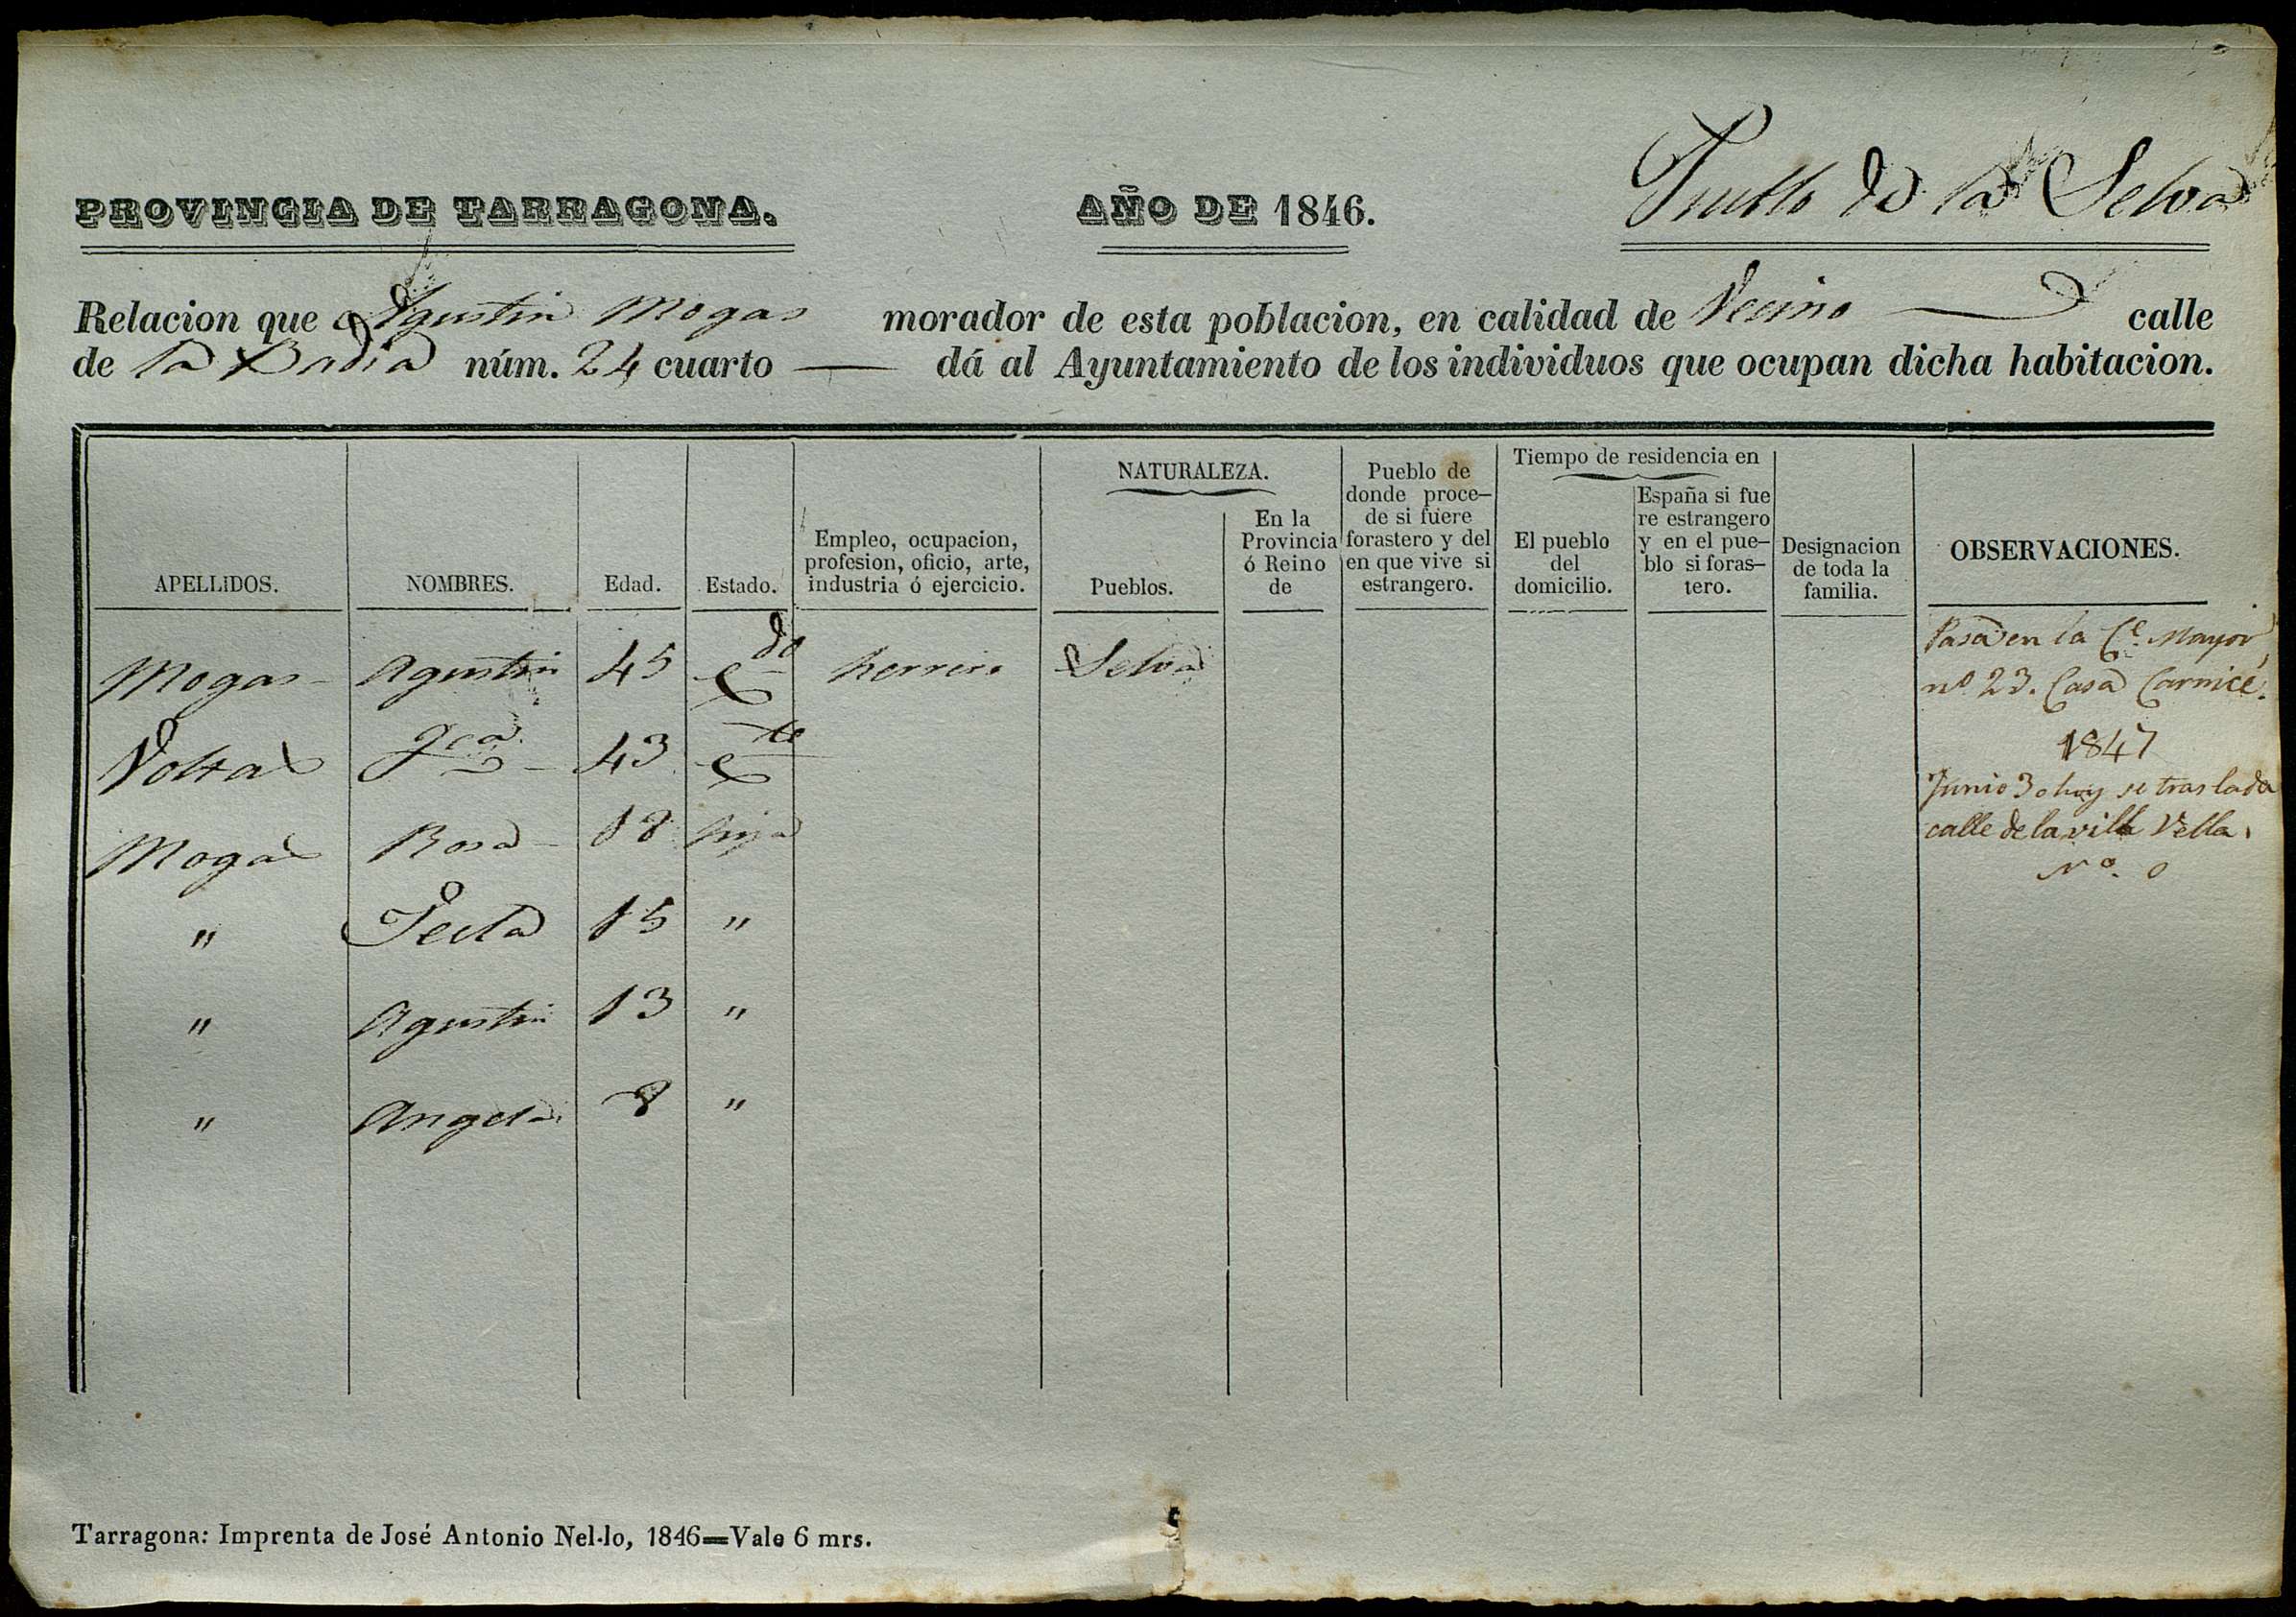 PROVINCIA DE TARRAGONA. AÑO DE 1846. Pueblo de la Selva
Relacion que Agustin Mogas morador de esta poblacion, en calidad de Vecino calle
de la Badia núm. 24 cuarto — dá al Ayuntamiento de los individuos que ocupan dicha habitacion.
APELLIDOS.
NOMBRES.
Edad.
Estado.
Empleo, ocupacion,
profesion, oficio, arte,
industria ó ejercicio.
NATURALEZA.
Pueblos.
En la
Provincia
ó Reino
de
Pueblo de
donde proce-
de si fuere
forastero y del
en que vive si
estrangero.
Tiempo de residencia en
El pueblo
del
domicilio.
España si fue
re estrangero
y en el pue-
blo si foras-
tero.
Designacion
de toda la
familia.
OBSERVACIONES.
Mogas Agustin 45 Cdo herrero Selva
Voltas Fca 43 Cte
Mogas Rosa 18 hija
" Tecla 15 "
" Agustin 13 "
" Angela 8 "
Pasa en la Ce. Mayor
no 23. Casa Carnice.
1847
Junio 30 hoy se traslada
calle de la villa Vella.
No. 0
Tarragona: Imprenta de José Antonio Nel·lo, 1846=Vale 6 mrs.